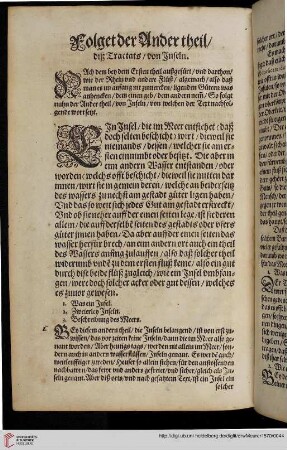 Folget der Ander theil/
diß Tractats/ von Inseln.
Nach dem bey dem Ersten theil außgefürt/ vnd darthon/
wie der Rhein vnd andere Flüß/ also daß
man ei im anfang mit zumercken/ Jemden Gütern was
anhencken/ dem einen geb/ dem andern nem/ So folgt
nuhn der Ander theil/ von Inseln/ von welchen der Text nachfol-
gende wort setzt.
Ein Insel/ die im Meer entstehet/ daß
doch selten beschicht/ wirt/ dieweil sie
niemands/ dessen/ welcher sie am er-
sten einnimbt oder besitzt. Die aber in
eim andern Wasser entstanden/ oder
worden/ welchs offt beschicht/ dieweil sie mitten dar
innen/ wirt sie in gemein deren/ welche an beider setz
des wassers zunechst am gestad güter ligen haben/
Vnd das so weit sich jedes Gut am gestad erstreckt/
Vnd ob sie neher auff der einen seiten lege/ ist sie deren
allein/ die auff derselbē seiten des gestads oder vfers
güter jnnen haben/ Da aber auff der einen seiten das
wasser herfür brech/ an eim andern ort auch ein theil
des Wassers anfing zulauffen/ also daß solcher theil
widerumb vnd zu dem ersten fluß keme/ also ein gut
durch dise beide flüß zugleich/ wie ein Insel vmbfan-
gen/ were doch solcher acker oder gut dessen/ welches
es zuuor gewesen.
1. Was ein Insel.
2. Zweierley Inseln.
3. Beschreibung des Meers.
Bey disem andern theil/ die Inseln belangend/ ist von erst zu-
wissen/ das vor zeiten keine Inseln/ dann die im Meer also ge-
nant worden/ Aber heutigs tags/ werden nit allein im Meer/ son-
dern auch in andern wasserflüssen/ Inseln genant. Es werdē auch/
Heuser so allein stehen/ für den anstossenden
nachbarn/ das ferre vnd anders gefreiet/ vnd sicher/ gleich als In-
seln genant. Aber diß orts/ vnd nach gesatztem Text/ ist ein Insel ein
solcher